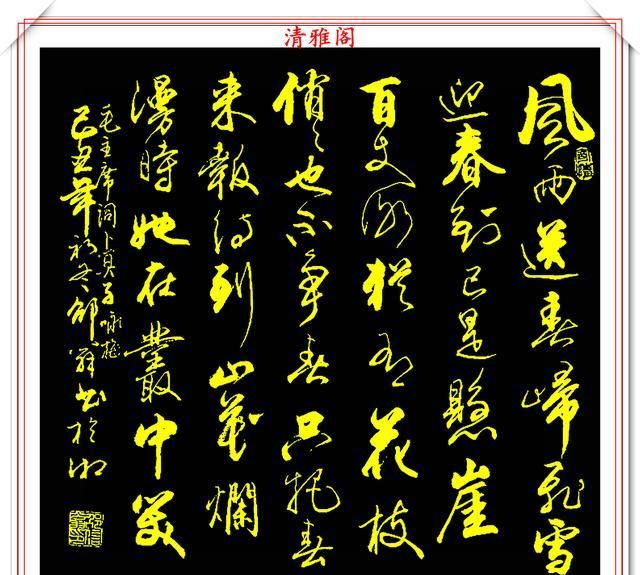 清雅阁
風雨送春歸飛雪
迎春到已是懸崖
百丈冰猶有花枝
俏俏也不争春只把春
来報待到山花爛
漫時她在叢中笑
毛主席词卜算子咏梅
己丑年初冬邵
书於